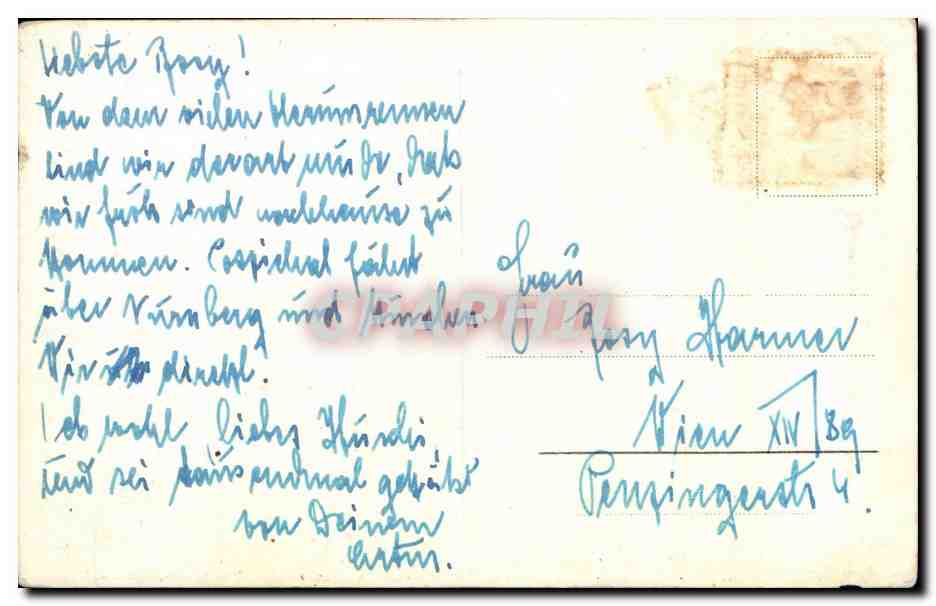 Liebste Rosy!
Von dem vielen Herumrennen
sind wir derart müde, dass
wir froh sind nachhause zu
kommen. fährt
über Nürnberg und München
Wir direkt.
Leb wohl liebes Huschi
und sei tausendmal geküsst
von Deinem
Frau
Rosy Harmer
Wien XIV/89
Penzingerstr 4.
CPAPHIL